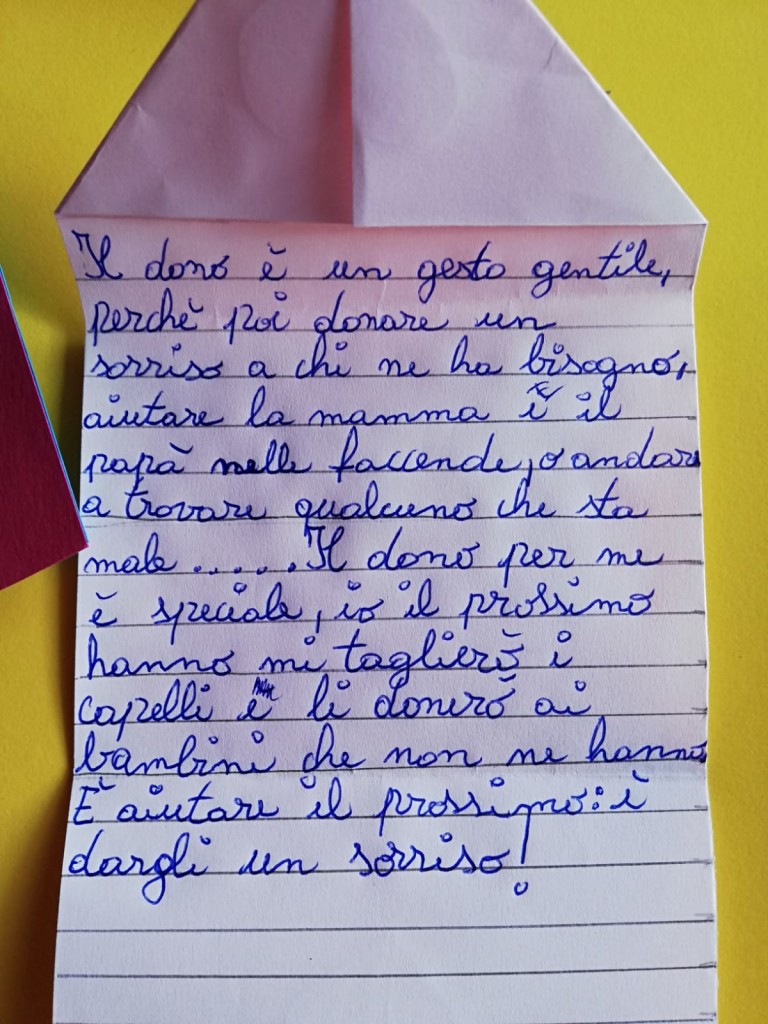 Il dono è un gesto gentile,
perchè poi donare un
sorriso a chi ne ha bisogno,
aiutare la mamma e il
papà nelle faccende, o andare
a trovare qualcuno che sta
male ..... Il dono per me
è speciale, io il prossimo
hanno mi taglierò i
capelli e li donerò ai
bambini che non ne hanno.
È aiutare il prossimo: è
dargli un sorriso!